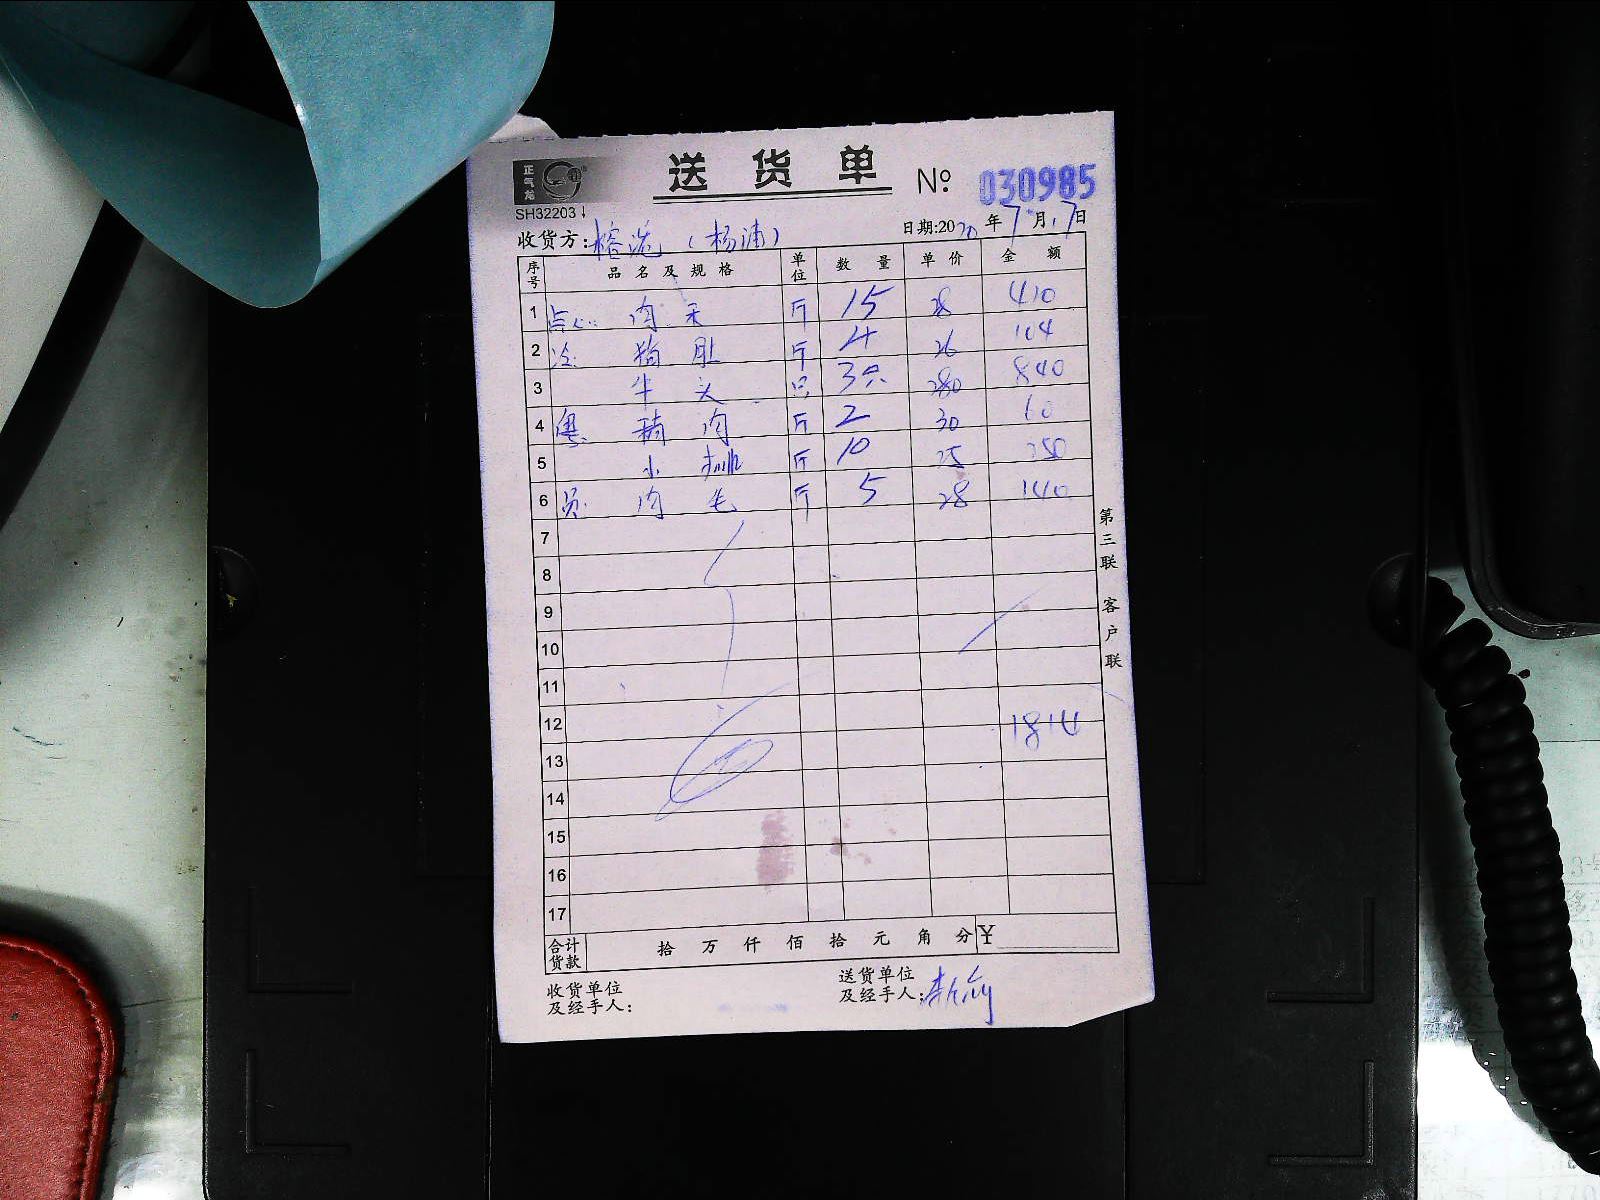 正气龙
送 货 单 № 030985
SH32203
收货方: (杨浦) 日期:2020年7月17日
序号 品名及规格 单位 数量 单价 金额
1 点心: 肉 斤 15 28 410
2 冷: 猪肚 斤 4 26 104
3 牛头 只 3只 280 840
4 粤: 精肉 斤 2 30 60
5 小排 斤 10 25 250
6 员: 肉 斤 5 28 140
7
8
9
10
11
12 1814
13
14
15
16
17
合计货款 拾 万 仟 佰 拾 元 角 分 ¥
收货单位 送货单位
及经手人: 及经手人:
第三联 客户联